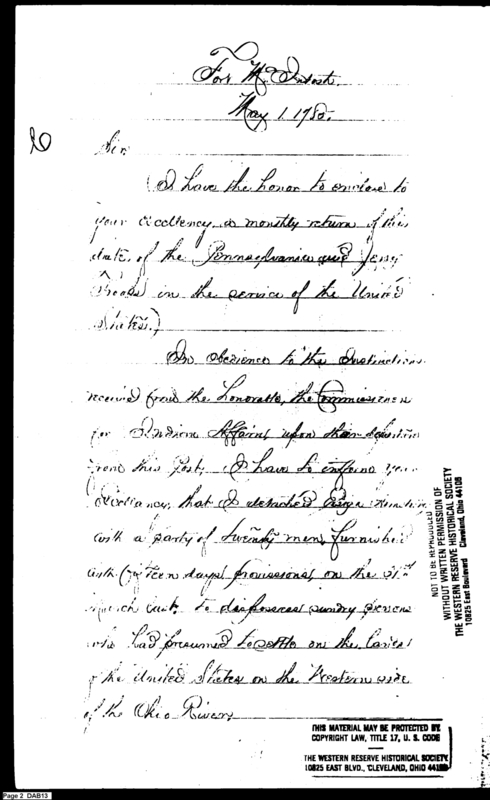 Fort McIntosh.
May 1. 1785.
Sir
(I have the honor to enclose to
your excellency, a monthly return of this
date, of the Pennsylvania and Jersey
Troops in the service of the United
States.)
In obedience to the Instructions
received from the Honorable, the Commissioners
for Indian Affairs upon their
from this Post. I have to inform your
Excellency, that I detached Ensign
with a party of twenty men, furnished
with fifteen days provissions, on the 31st
March last, to dispossess sundry persons
who had presumed to settle on the lands
of the United States on the Western side
of the Ohio River,
NOT TO BE REPRODUCED
WITHOUT WRITTEN PERMISSION OF
THE WESTERN RESERVE HISTORICAL SOCIETY
10825 East Boulevard Cleveland, Ohio 44106
THIS MATERIAL MAY BE PROTECTED BY
COPYRIGHT LAW, TITLE 17, U. S. CODE
THE WESTERN RESERVE HISTORICAL SOCIETY
10825 EAST BLVD., CLEVELAND, OHIO 44106
Page 2 DAB13